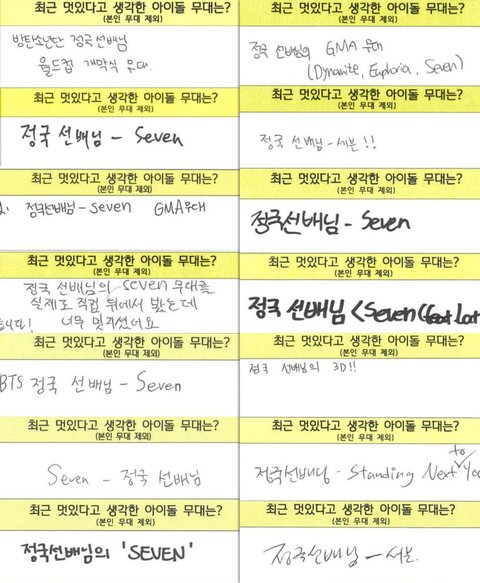 최근 멋있다고 생각한 아이돌 무대는?
(본인 무대 제외)
방탄소년단 정국선배님
월드컵 개막식 무대.
최근 멋있다고 생각한 아이돌 무대는?
(본인 무대 제외)
정국 선배님 - Seven
최근 멋있다고 생각한 아이돌 무대는?
(본인 무대 제외)
정국선배님 - seven GMA무대
최근 멋있다고 생각한 아이돌 무대는?
(본인 무대 제외)
정국 선배님의 seven 무대를
실제로 직접 뒤에서 봤는데
습니다! 너무 멋지셨어요
최근 멋있다고 생각한 아이돌 무대는?
(본인 무대 제외)
BTS 정국 선배님 - Seven
최근 멋있다고 생각한 아이돌 무대는?
(본인 무대 제외)
Seven - 정국 선배님
최근 멋있다고 생각한 아이돌 무대는?
(본인 무대 제외)
정국선배님의 'SEVEN'
최근 멋있다고 생각한 아이돌 무대는?
(본인 무대 제외)
정국 선배님의 GMA 무대
(Dynamite, Euphoria, Seven)
최근 멋있다고 생각한 아이돌 무대는?
(본인 무대 제외)
정국 선배님 - 세븐!!
최근 멋있다고 생각한 아이돌 무대는?
(본인 무대 제외)
정국선배님 - Seven
최근 멋있다고 생각한 아이돌 무대는?
(본인 무대 제외)
정국 선배님 <Seven (feat. Lat
최근 멋있다고 생각한 아이돌 무대는?
(본인 무대 제외)
정국 선배님의 3D!!
최근 멋있다고 생각한 아이돌 무대는?
(본인 무대 제외)
정국선배님 - Standing Next to You
최근 멋있다고 생각한 아이돌 무대는?
(본인 무대 제외)
정국선배님 - 세븐.